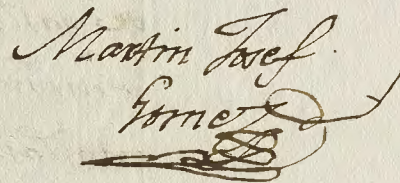 Martin Josef
Gomez